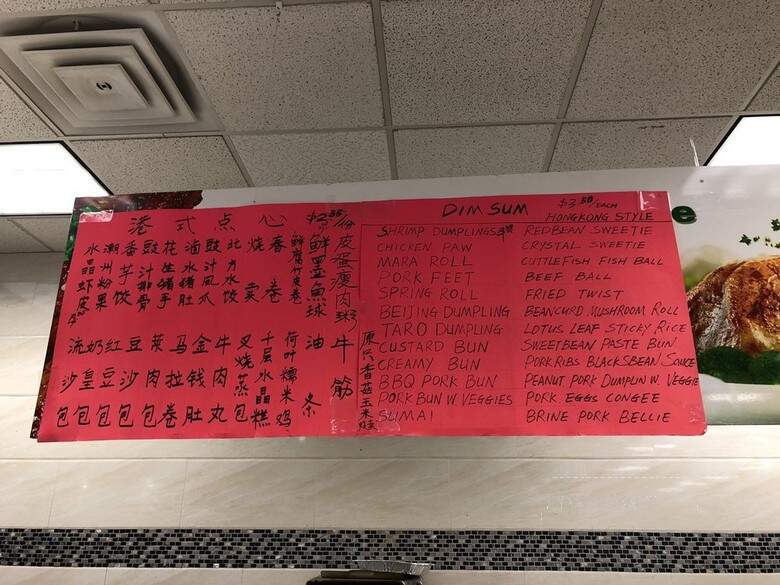 港式点心
水晶虾
潮州粉果
香芋饺
豉汁排骨
花生猪手
卤水猪肚
豉汁凤爪
北方水饺
烧卖
春卷
鲜腐竹皮卷
鲜墨鱼球
皮蛋瘦肉粥
流沙包
奶皇包
红豆包
豆沙包
菜肉包
马拉卷
金钱肚
牛肉丸
叉烧蒸包
千层水晶糕
荷叶糯米鸡
油条
牛筋
原只香菇玉米
DIM SUM $3.50/EACH
HONGKONG STYLE
SHRIMP DUMPLINGS
CHICKEN PAW
MARA ROLL
PORK FEET
SPRING ROLL
BEIJING DUMPLING
TARO DUMPLING
CUSTARD BUN
CREAMY BUN
BBQ PORK BUN
PORK BUN W. VEGGIES
SUMAI
REDBEAN SWEETIE
CRYSTAL SWEETIE
CUTTLEFISH FISH BALL
BEEF BALL
FRIED TWIST
BEANCURD MUSHROOM ROLL
LOTUS LEAF STICKY RICE
SWEETBEAN PASTE BUN
PORK RIBS BLACKSBEAN SAUCE
PEANUT PORK DUMPLIN W. VEGGIE
PORK EGGS CONGEE
BRINE PORK BELLIE
e